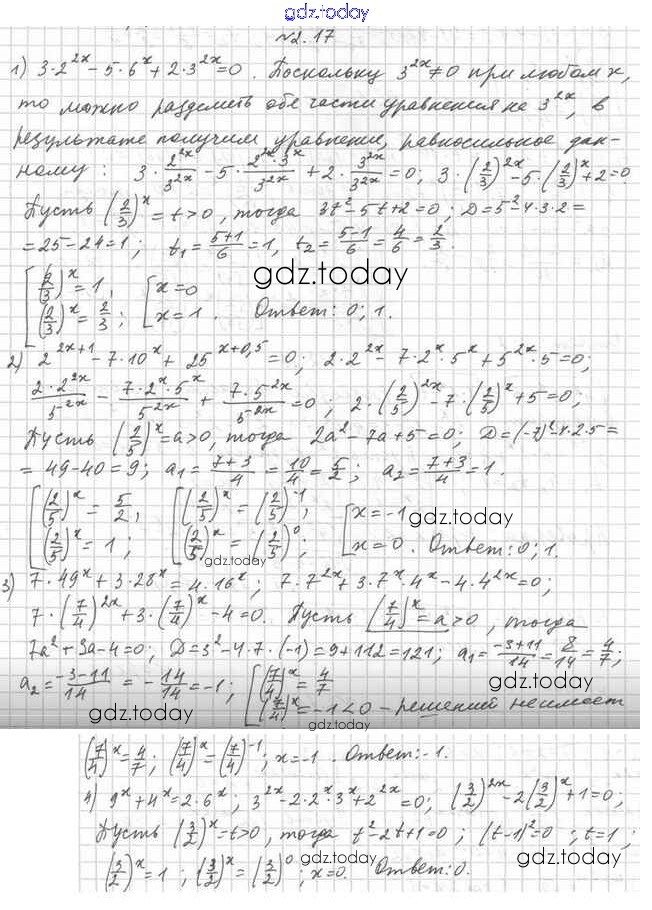 gdz.today
№2.17
1) 3·2^{2x} - 5·6^x + 2·3^{2x} = 0. Поскольку 3^{2x} ≠ 0 при любом x,
то можно разделить обе части уравнения на 3^{2x}, в
результате получим уравнение, равносильное дан-
ному: 3·\frac{2^{2x}}{3^{2x}} - 5·\frac{2^x·3^x}{3^{2x}} + 2·\frac{3^{2x}}{3^{2x}} = 0; 3·(\frac{2}{3})^{2x} - 5·(\frac{2}{3})^x + 2 = 0
Пусть (\frac{2}{3})^x = t > 0, тогда 3t² - 5t + 2 = 0; D = 5² - 4·3·2 =
= 25 - 24 = 1; t₁ = \frac{5+1}{6} = 1, t₂ = \frac{5-1}{6} = \frac{4}{6} = \frac{2}{3}.
gdz.today
[ (\frac{2}{3})^x = 1, [ x = 0
(\frac{2}{3})^x = \frac{2}{3}; x = 1. Ответ: 0; 1.
2) 2^{2x+1} - 7·10^x + 25^{x+0,5} = 0; 2·2^{2x} - 7·2^x·5^x + 5^{2x}·5 = 0;
\frac{2·2^{2x}}{5^{2x}} - \frac{7·2^x·5^x}{5^{2x}} + \frac{7·5^{2x}}{5^{2x}} = 0; 2·(\frac{2}{5})^{2x} - 7·(\frac{2}{5})^x + 5 = 0;
Пусть (\frac{2}{5})^x = a > 0, тогда 2a² - 7a + 5 = 0; D = (-7)² - 4·2·5 =
= 49 - 40 = 9; a₁ = \frac{7+3}{4} = \frac{10}{4} = \frac{5}{2}; a₂ = \frac{7+3}{4} = 1.
[ (\frac{2}{5})^x = \frac{5}{2}, [ (\frac{2}{5})^x = (\frac{2}{5})^{-1}; [ x = -1
gdz.today
(\frac{2}{5})^x = 1; (\frac{2}{5})^x = (\frac{2}{5})^0; x = 0. Ответ: 0; 1.
gdz.today
3) 7·49^x + 3·28^x = 4·16^x; 7·7^{2x} + 3·7^x·4^x - 4·4^{2x} = 0;
7·(\frac{7}{4})^{2x} + 3·(\frac{7}{4})^x - 4 = 0. Пусть (\frac{7}{4})^x = a > 0, тогда
7a² + 3a - 4 = 0; D = 3² - 4·7·(-1) = 9 + 112 = 121; a₁ = \frac{-3+11}{14} = \frac{8}{14} = \frac{4}{7};
a₂ = \frac{-3-11}{14} = -\frac{14}{14} = -1; [ (\frac{7}{4})^x = \frac{4}{7}
gdz.today
(\frac{7}{4})^x = -1 < 0 - решений не имеет
gdz.today
(\frac{7}{4})^x = \frac{4}{7}; (\frac{7}{4})^x = (\frac{7}{4})^{-1}; x = -1. Ответ: -1.
4) 9^x + 4^x = 2·6^x; 3^{2x} - 2·2^x·3^x + 2^{2x} = 0; (\frac{3}{2})^{2x} - 2(\frac{3}{2})^x + 1 = 0;
Пусть (\frac{3}{2})^x = t > 0, тогда t² - 2t + 1 = 0; (t-1)² = 0; t = 1;
gdz.today
gdz.today
(\frac{3}{2})^x = 1; (\frac{3}{2})^x = (\frac{3}{2})^0; x = 0. Ответ: 0.